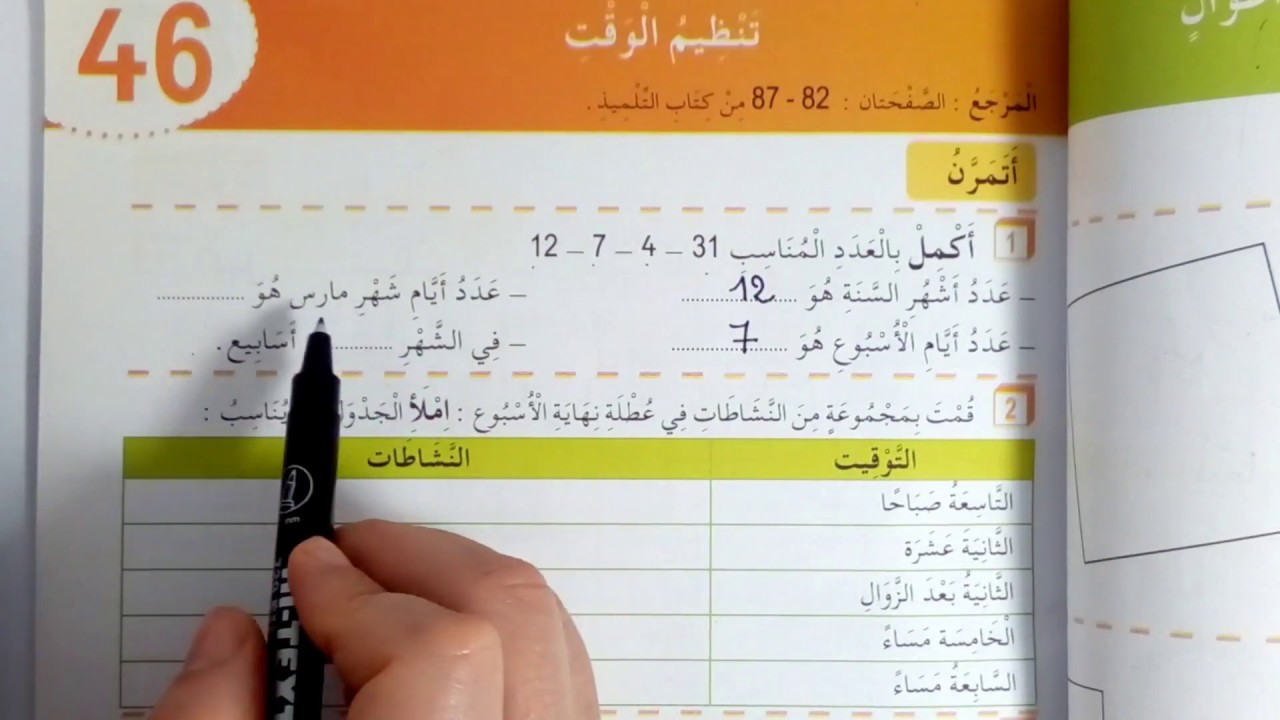 46
تَنْظِيمُ الْوَقْتِ
الْمَرْجَعُ : الصَّفْحَتان : 82 - 87 مِنْ كِتَابِ التِّلْمِيذِ .
أَتَمَرَّنُ
1 أَكْمِلْ بِالْعَدَدِ الْمُنَاسِبِ 31 – 4 – 7 – 12
– عَدَدُ أَشْهُرِ السَّنَةِ هُوَ ....12.... – عَدَدُ أَيَّامِ شَهْرِ مارس هُوَ ............
– عَدَدُ أَيَّامِ الْأُسْبُوعِ هُوَ ....7.... – فِي الشَّهْرِ ............ أَسَابِيع .
2 قُمْتَ بِمَجْمُوعَةٍ مِنَ النَّشَاطَاتِ فِي عُطْلَةِ نِهَايَةِ الْأُسْبُوع : اِمْلَأ الْجَدْوَلَ يُنَاسِبُ :
التَّوْقِيت النَّشَاطَات
التَّاسِعَةُ صَبَاحًا
الثَّانِيَةَ عَشَرَة
الثَّانِيَةُ بَعْدَ الزَّوَالِ
الْخَامِسَة مَسَاءً
السَّابِعَةُ مَسَاءً